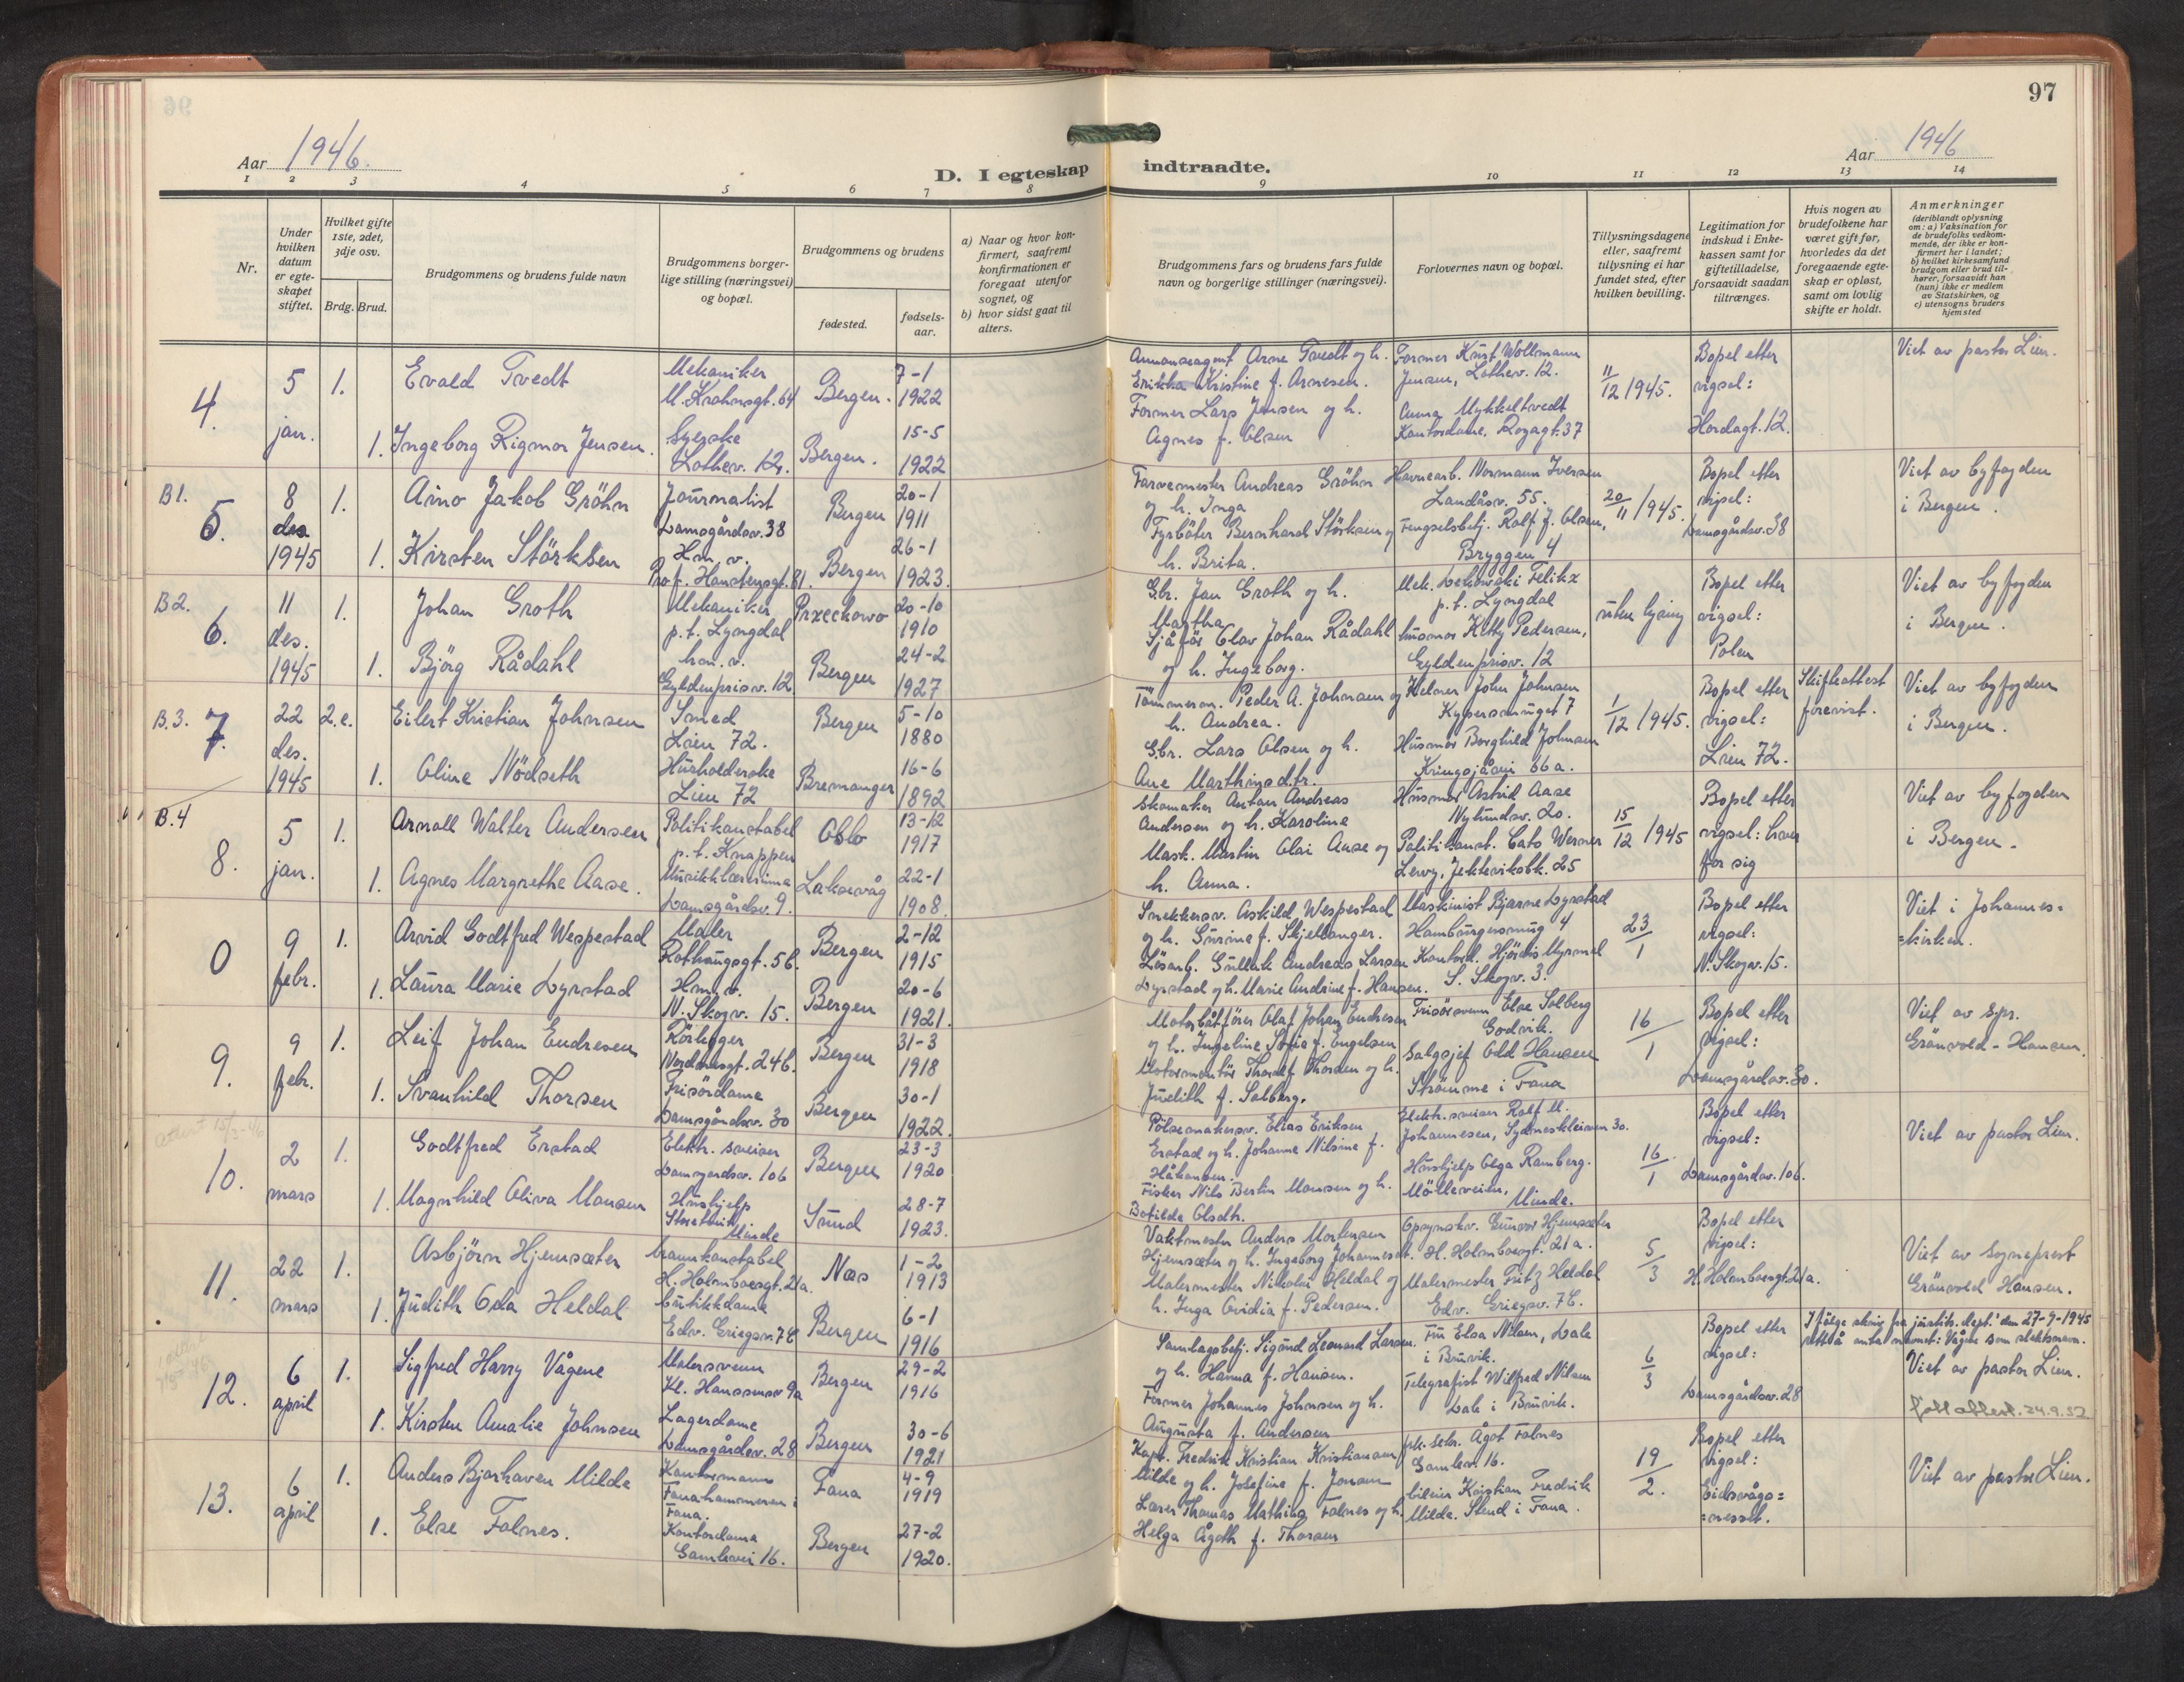 97
Aar 1946.
D. I egteskap indtraadte.
Aar 1946
1 2 3 4 5 6 7 8 9 10 11 12 13 14
Nr.
Under hvilken datum er egteskapet stiftet.
Hvilket gifte 1ste, 2det, 3dje osv.
Brdg. Brud.
Brudgommens og brudens fulde navn
Brudgommens borgerlige stilling (næringsvei) og bopæl.
Brudgommens og brudens
fødested.
fødselsaar.
a) Naar og hvor konfirmert, saafremt konfirmationen er foregaat utenfor sognet, og
b) hvor sidst gaat til alters.
Brudgommens fars og brudens fars fulde navn og borgerlige stillinger (næringsvei).
Forlovernes navn og bopæl.
Tillysningsdagene eller, saafremt tillysning ei har fundet sted, efter hvilken bevilling.
Legitimation for indskud i Enkekassen samt for giftetilladelse, forsaavidt saadan tiltrænges.
Hvis nogen av brudefolkene har været gift før, hvorledes da det foregaaende egteskap er opløst, samt om lovlig skifte er holdt.
Anmerkninger
(deriblandt oplysning om: a) Vaksination for de brudefolks vedkommende, der ikke er konfirmert her i landet; b) hvilket kirkesamfund brudgom eller brud tilhører, forsaavidt han (hun) ikke er medlem av Statskirken, og c) utensogns bruders hjemsted
4. 5 jan. 1. Evald Tvedt
Mekaniker
M. Krohnsgt. 64
Bergen. 7-1 1922
1. Ingeborg Rigmor Jensen.
Syerske
Lothev. 12.
Bergen. 15-5 1922
Annonseagent Arne Tvedt og h.
Erikka Kristine f. Arnesen.
Former Lars Jensen og h.
Agnes f. Olsen
Former Knut Wollmann
Jensen, Lothev. 12.
Anna Mykkeltvedt
Kontordame, Rozagt. 37
11/12 1945.
Bopel etter
vigsel:
Hordagt. 12.
Viet av pastor Lien.
B1. 5. 8 des 1945 1. Arno Jakob Gröhn
Journalist
Damsgårdsv. 38
Bergen 20-1 1911
1. Kirsten Störksen
Hm. v.
Prof. Hansteensgt. 81.
Bergen 26-1 1923.
Farvemester Andreas Gröhn
og h. Inga
Fyrböter Bernhard Störksen og
h. Brita.
Havnearb. Normann Iversen
Landåsv. 55.
Fengselsbetj. Rolf J. Olsen,
Bryggen 4
20/11 1945.
Bopel etter
vigsel:
Damsgårdsv. 38
Viet av byfogden
i Bergen.
B2. 6. 11 des. 1945 1. Johan Groth
Mekaniker
p.t. Lyngdal
Przechowo 20-10 1910
1. Björg Rådahl
hm. v.
Gyldenprisv. 12
Bergen 24-2 1927
Gbr. Jan Groth og h.
Martha
Sjåför Olav Johan Rådahl
og h. Ingeborg.
Mek. Dekowski Felikz
p.t. Lyngdal
husmor Ketty Pedersen,
Gyldenprisv. 12
uten lysing
Bopel etter
vigsel:
Polen
Viet av byfogden
i Bergen.
B.3. 7. 22 des. 1945 2.e. Eilert Kristian Johnsen
Smed
Lien 72.
Bergen 5-10 1880
1. Oline Nödseth
Husholderske
Lien 72
Bremanger 16-6 1892
Tömmerm. Peder A. Johnsen og
h. Andrea.
Gbr. Lars Olsen og h.
Ane Marthinsdtr.
Kelner John Johnsen
Kypersmuget 7
Husmor Borghild Johnsen
Kringsjåvei 66a.
1/12 1945.
Bopel etter
vigsel:
Lien 72.
Skifteattest
forevist.
Viet av byfogden
i Bergen.
B.4 8. 5 jan. 1. Arnall Walter Andersen
Politikonstabel
p.t. Knappen
Oslo 13-12 1917
1. Agnes Margrethe Aase.
Musikklærerinne
Damsgårdsv. 9.
Laksevåg 22-1 1908.
Skomaker Anton Andreas
Andersen og h. Karoline
Mask. Martin Olai Aase og
h. Anna.
Husmor Astrid Aase
Nylundsv. 20.
Politikonst. Cato Werner
Lervy, Jekteviksbk. 25
15/12 1945
Bopel etter
vigsel: hver
for sig
Viet av byfogden
i Bergen.
0 9 febr. 1. Arvid Godtfred Wespestad
Maler
Rothaugsgt. 5b.
Bergen 2-12 1915
1. Laura Marie Dyrstad
Hm. v.
N. Skogv. 15.
Bergen 20-6 1921.
Snekkersv. Askild Wespestad
og h. Gurine f. Skjellanger.
Lösarb. Gullerik Andreas Larsen
Dyrstad og h. Marie Andrine f. Hansen.
Maskinist Bjarne Dyrstad
Hamburgersmug 4
Kontord. Hjördis Myrmel
S. Skogv. 3.
23/1
Bopel etter
vigsel:
N. Skogv. 15.
Viet i Johannes=
=kirken.
9. 9 febr. 1. Leif Johan Endresen
Rörlegger
Nordnesgt. 24b.
Bergen 31-3 1918
1. Svanhild Thorsen
Frisördame
Damsgårdsv. 30
Bergen 30-1 1922.
Motorbåtförer Olaf Johan Endresen
og h. Ingeline Sofia f. Engelsen
Motormontör Thoralf Thorsen og h.
Judith f. Solberg.
Frisörsvenn Else Solberg
Godvik.
Salgsjef Odd Hansen
Strömme i Fana
16/1
Bopel etter
vigsel:
Damsgårdsv. 30.
Viet av spr.
Grönvold-Hansen.
10. 2 mars 1. Godtfred Erstad
Elektr. sveiser
Damsgårdsv. 106
Bergen 23-3 1920
1. Magnhild Oliva Monsen
Hushjelp
Minde
Sund 28-7 1923.
Pölsemakersv. Elias Eriksen
Erstad og h. Johanne Nilsine f.
Håkonsen.
Fisker Nils Bertin Monsen og h.
Botilde Olsdtr.
Elektr. sveiser Rolf M.
Johannesen, Sydneskleiven 30.
Hushjelp Olga Ramberg.
Mölleveien,
Minde.
16/1
Bopel etter
vigsel:
Damsgårdsv. 106.
Viet av pastor Lien.
11. 22 mars 1. Asbjörn Hjemsæter
brannkonstabel
H. Holmboesgt. 21a.
Nes 1-2 1913
1. Judith Oda Heldal
butikkdame
Edv. Griegsv. 7b.
Bergen 6-1 1916
Vaktmester Anders Mortensen
Hjemsæter og h. Ingeborg Johannesdt.
Malermester Nikolai Heldal og
h. Inga Ovidia f. Pedersen.
Opsynskv. Gunvor Hjemsæter
H. Holmboesgt. 21a.
Malermester Fritz Heldal
Edv. Griegsv. 7b.
5/3
Bopel etter
vigsel:
H. Holmboesgt. 21a.
Viet av sogneprest
Grönvold Hansen.
12. 6 april 1. Sigfred Harry Vågene
Malersvenn
Kl. Hanssensv 9a
Bergen 29-2 1916
1. Kirsten Amalie Johnsen
Lagerdame
Damsgårdsv. 28
Bergen 30-6 1921
Samlagsbetj. Sigurd Leonard Larsen
og h. Hanna f. Hansen.
Former Johannes Johnsen og h.
Augusta f. Andersen
Fru Elsa Nilsen, Dale
i Bruvik.
Telegrafist Wilfred Nilsen
Dale i Bruvik.
6/3
Bopel etter
vigsel:
Damsgårdsv. 28
Ifölge skriv fra justits.dept. den 27-9-1945
navnet: Vågene som slektsnavn.
Viet av pastor Lien.
24.9.52
13. 6 april 1. Anders Bjarhaven Milde
Kontormann
Fanahammeren i
Fana.
Fana 4-9 1919
1. Else Falnes.
Kontordame
Gamlevei 16.
Bergen 27-2 1920.
Kapt. Fredrik Kristian Kristiansen
Milde og h. Josefine f. Jonsen
Lærer Thomas Mathias Falnes og h.
Helga Ågoth f. Thorsen
Ågot Falnes
Gamlev. 16.
Kristian Fredrik
Milde. Stend i Fana.
19/2.
Bopel etter
vigsel:
Eidsvågs=
=nesset.
Viet av pastor Lien.